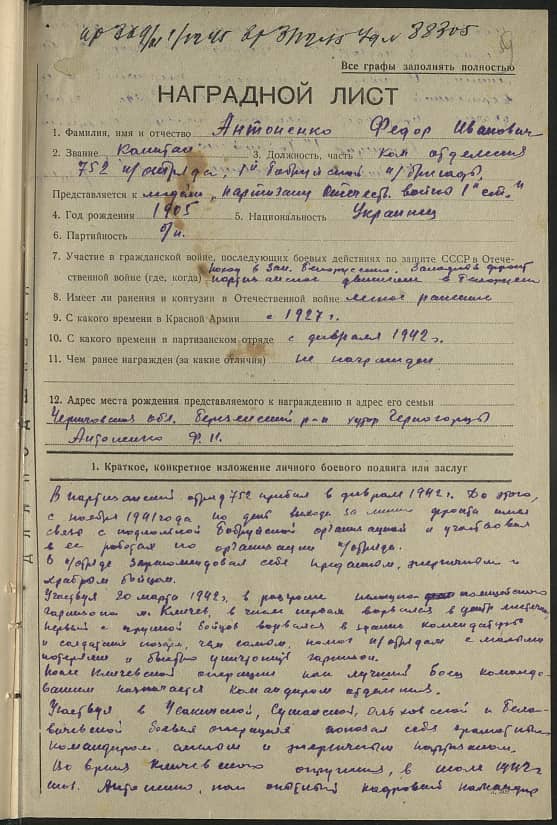 88305
Все графы заполнять полностью
НАГРАДНОЙ ЛИСТ
1. Фамилия, имя и отчество Антоненко Федор Иванович
2. Звание Капитан 3. Должность, часть Ком отделения
752 п/отряда 1й Бобруйской п/бригады
Представляется к медали „партизану Отечеств. войны 1й ст."
4. Год рождения 1905 5. Национальность Украинец
6. Партийность б/п.
7. Участие в гражданской войне, последующих боевых действиях по защите СССР в Отече-
ственной войне (где, когда) поход в Зап. Белоруссию. Западный фронт
партизанское движение в Белоруссии
8. Имеет ли ранения и контузии в Отечественной войне легкое ранение
9. С какого времени в Красной Армии с 1927 г.
10. С какого времени в партизанском отряде с февраля 1942 г.
11. Чем ранее награжден (за какие отличия) не награжден
12. Адрес места рождения представляемого к награждению и адрес его семьи
Черниговская обл. р-н хутор Черногорцы
Антоненко Ф. И.
1. Краткое, конкретное изложение личного боевого подвига или заслуг
В партизанский отряд 752 прибыл в феврале 1942 г. До этого,
с ноября 1941 года по день выхода за линию фронта имел
связь с подпольной Бобруйской организацией и участвовал
в ее работах по организации п/отряда.
В п/отряде зарекомендовал себя преданным, энергичным и
храбрым бойцом.
Участвуя 20 марта 1942 г. в разгроме полицейского
гарнизона м. Кличев, в числе первых ворвался в центр местечка,
первый с группой бойцов ворвался в здание комендатуры
и солдатских казарм, чем самым, помог п/отрядам с малыми
потерями и быстро уничтожить гарнизон.
После Кличевской операции как лучший боец командо-
ванием назначается командиром отделения.
Участвуя в Усакинской, Сушанской, Ольховской и Бела-
вичевской боевых операциях показал себя грамотным
командиром, смелым и энергичным партизаном.
Во время Кличевского окружения, в июле 1942 г.
тов. Антоненко, как опытный кадровый командир